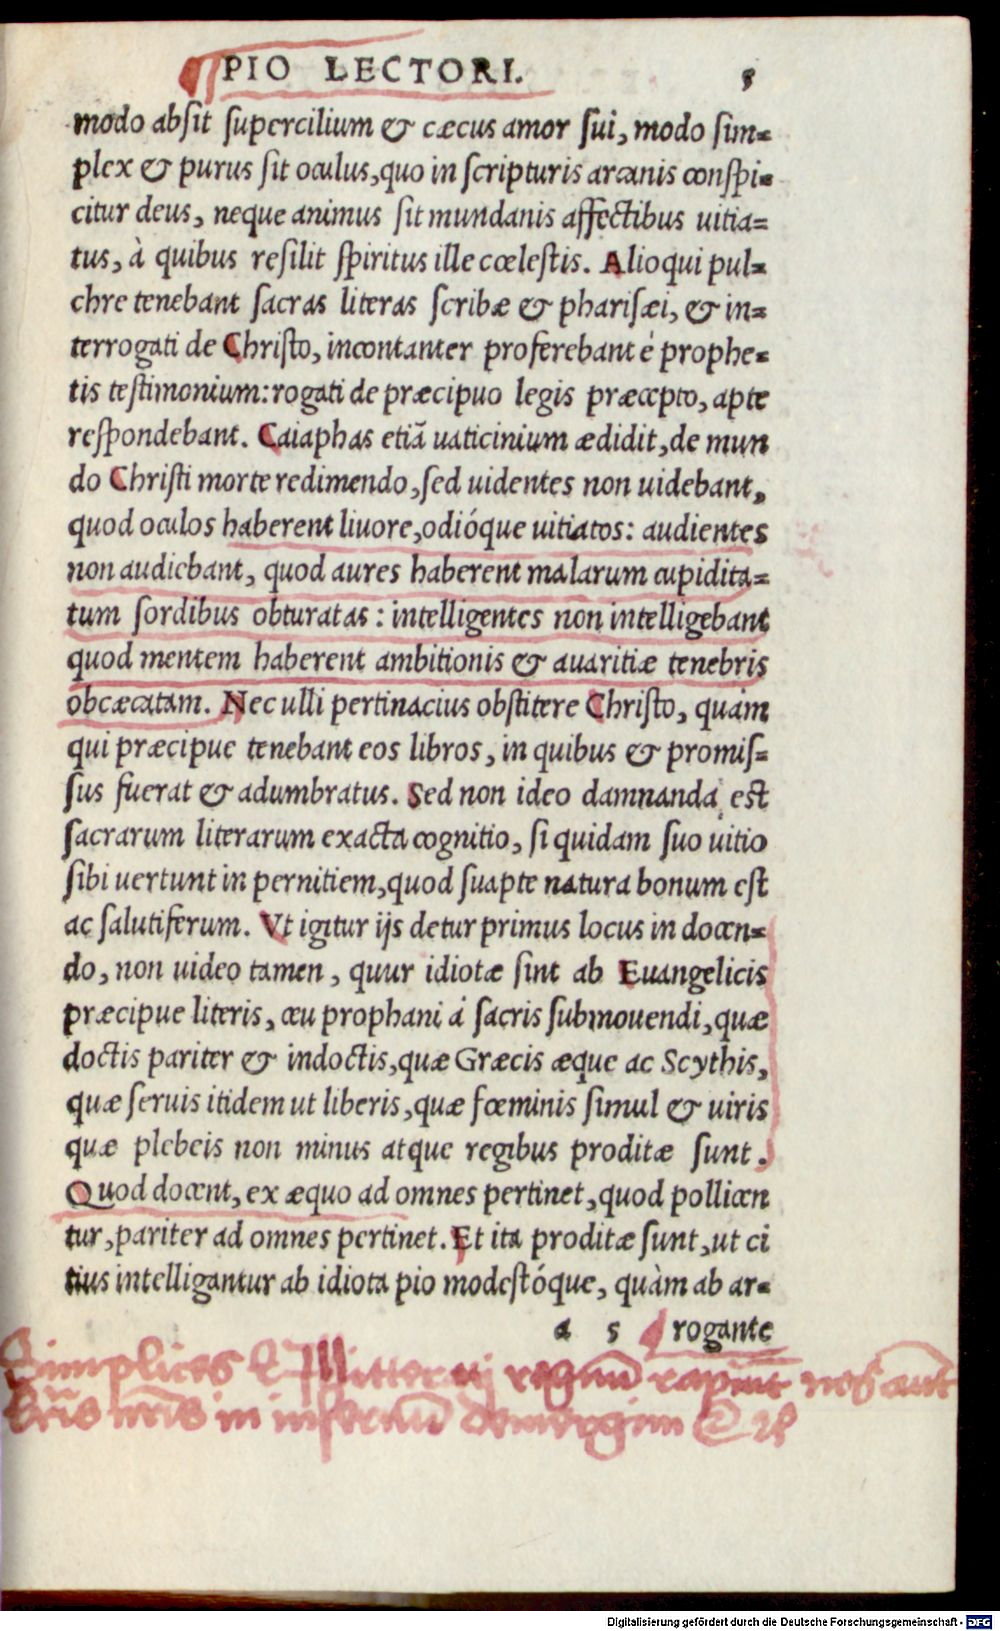 PIO LECTORI. 5
modo absit supercilium & cæcus amor sui, modo sim=
plex & purus sit oculus, quo in scripturis arcanis conspi=
citur deus, neque animus sit mundanis affectibus uitia=
tus, à quibus resilit spiritus ille cœlestis. Alioqui pul=
chre tenebant sacras literas scribæ & pharisæi, & in=
terrogati de Christo, incontanter proferebant è prophe=
tis testimonium: rogati de præcipuo legis præcepto, apte
respondebant. Caiaphas etiã uaticinium ædidit, de mun
do Christi morte redimendo, sed uidentes non uidebant,
quod oculos haberent liuore, odióque uitiatos: audientes
non audiebant, quod aures haberent malarum cupidita=
tum sordibus obturatas: intelligentes non intelligebant
quod mentem haberent ambitionis & auaritiæ tenebris
obcæcatam. Nec ulli pertinacius obstitere Christo, quàm
qui præcipue tenebant eos libros, in quibus & promis=
sus fuerat & adumbratus. Sed non ideo damnanda est
sacrarum literarum exacta cognitio, si quidam suo uitio
sibi uertunt in pernitiem, quod suapte natura bonum est
ac salutiferum. Vt igitur ijs detur primus locus in docen=
do, non uideo tamen, quur idiotæ sint ab Euangelicis
præcipue literis, ceu prophani á sacris submouendi, quæ
doctis pariter & indoctis, quæ Græcis æque ac Scythis,
quæ seruis itidem ut liberis, quæ fœminis simul & uiris
quæ plebeis non minus atque regibus proditæ sunt.
Quod docent, ex æquo ad omnes pertinet, quod pollicen
tur, pariter ad omnes pertinet. Et ita proditæ sunt, ut ci
tius intelligantur ab idiota pio modestóque, quàm ab ar=
a 5 rogante
Simplices regnũ rapiũt nos aut
in infernũ
Digitalisierung gefördert durch die Deutsche Forschungsgemeinschaft - DFG